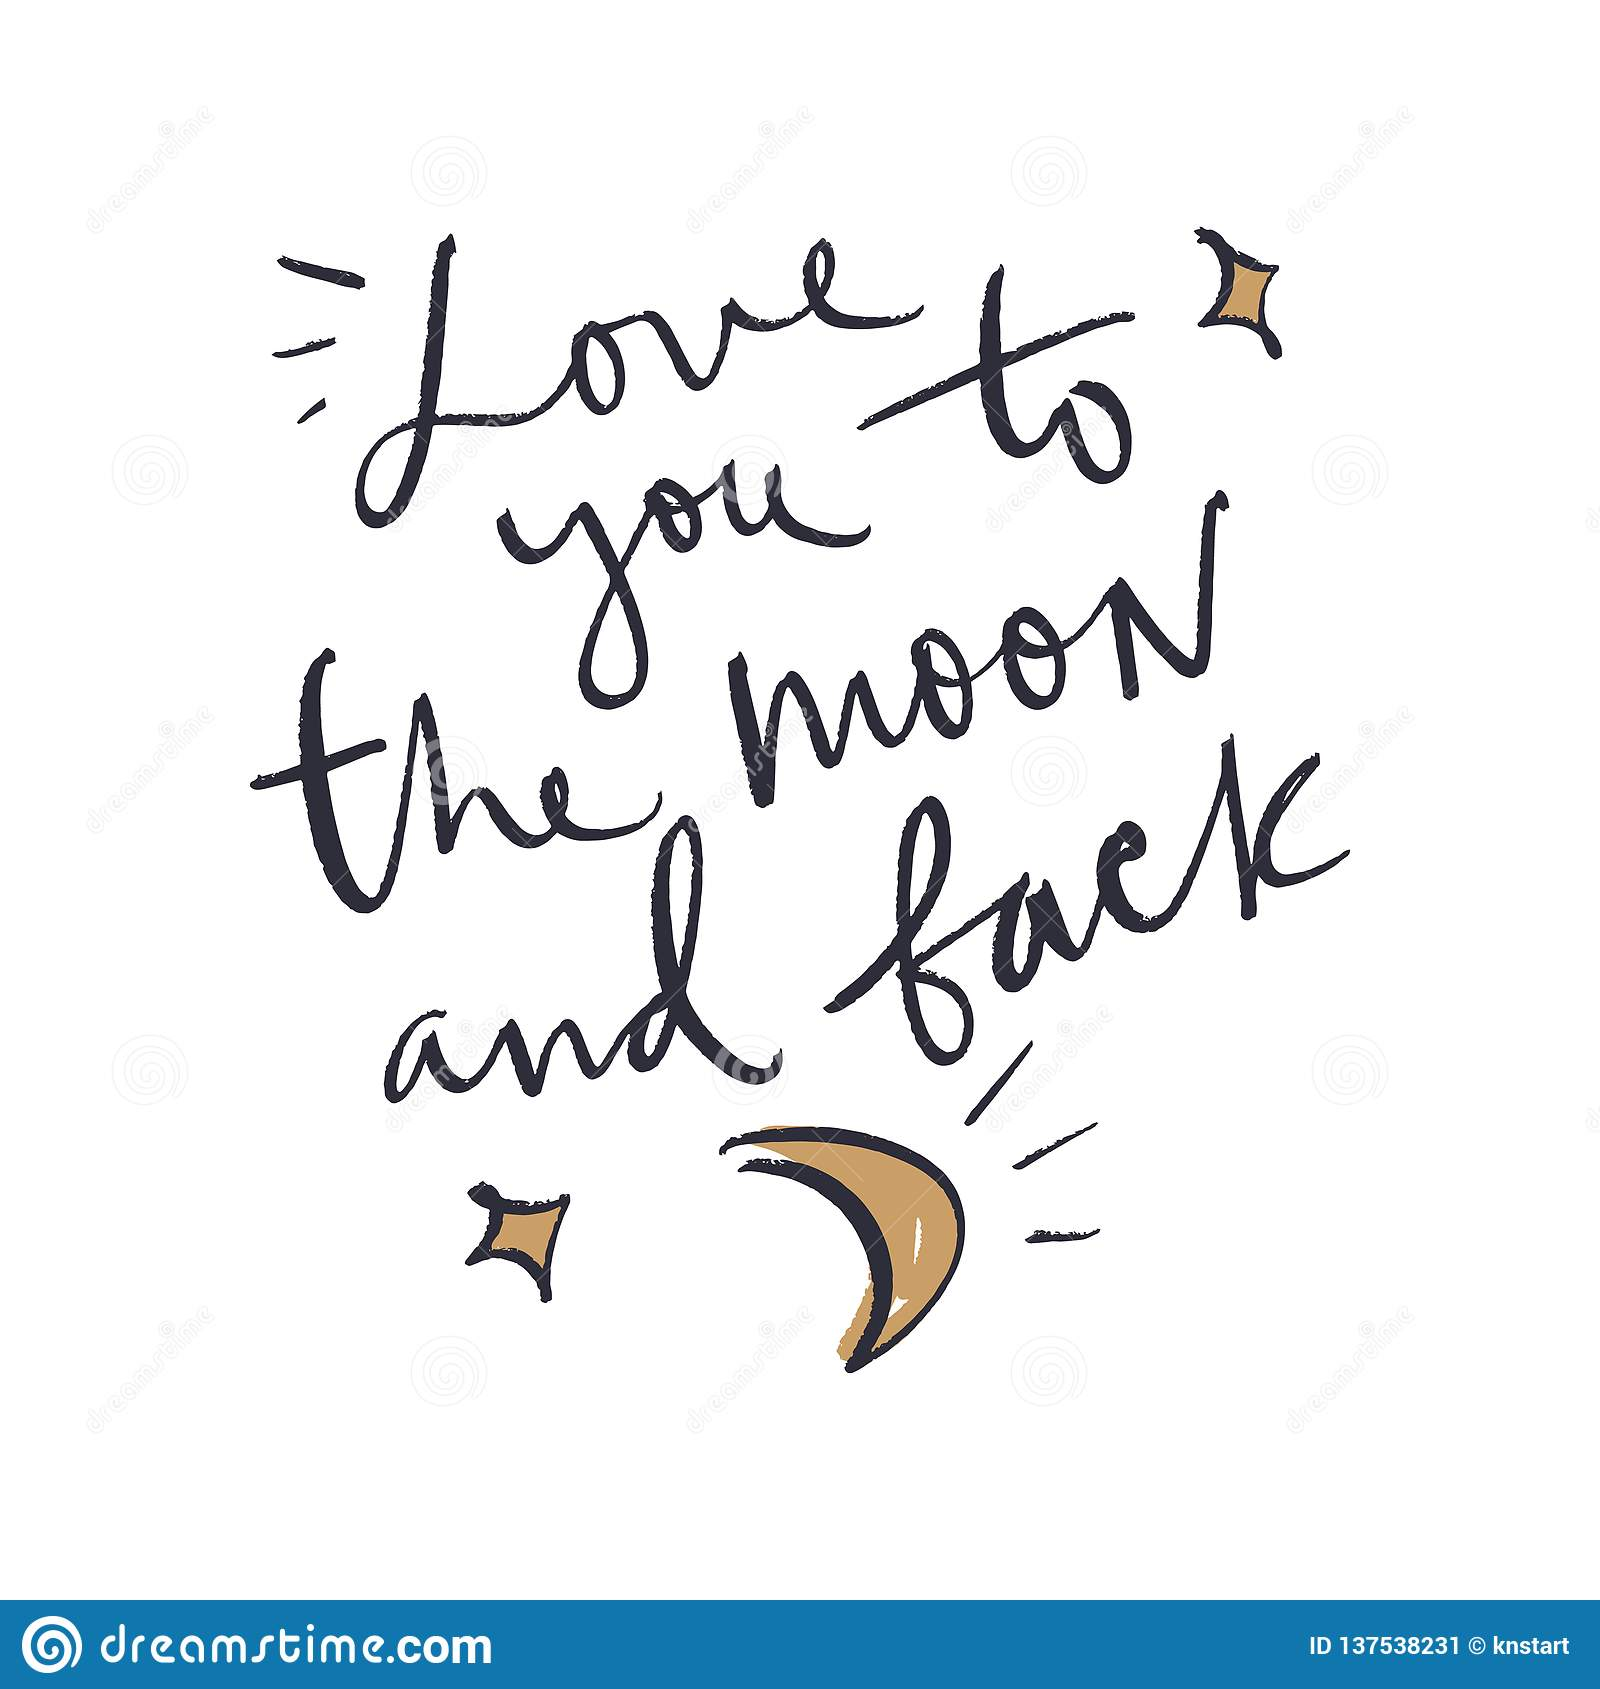 Love
you to
the moon
and back
dreamstime.com
ID 137538231 © knstart